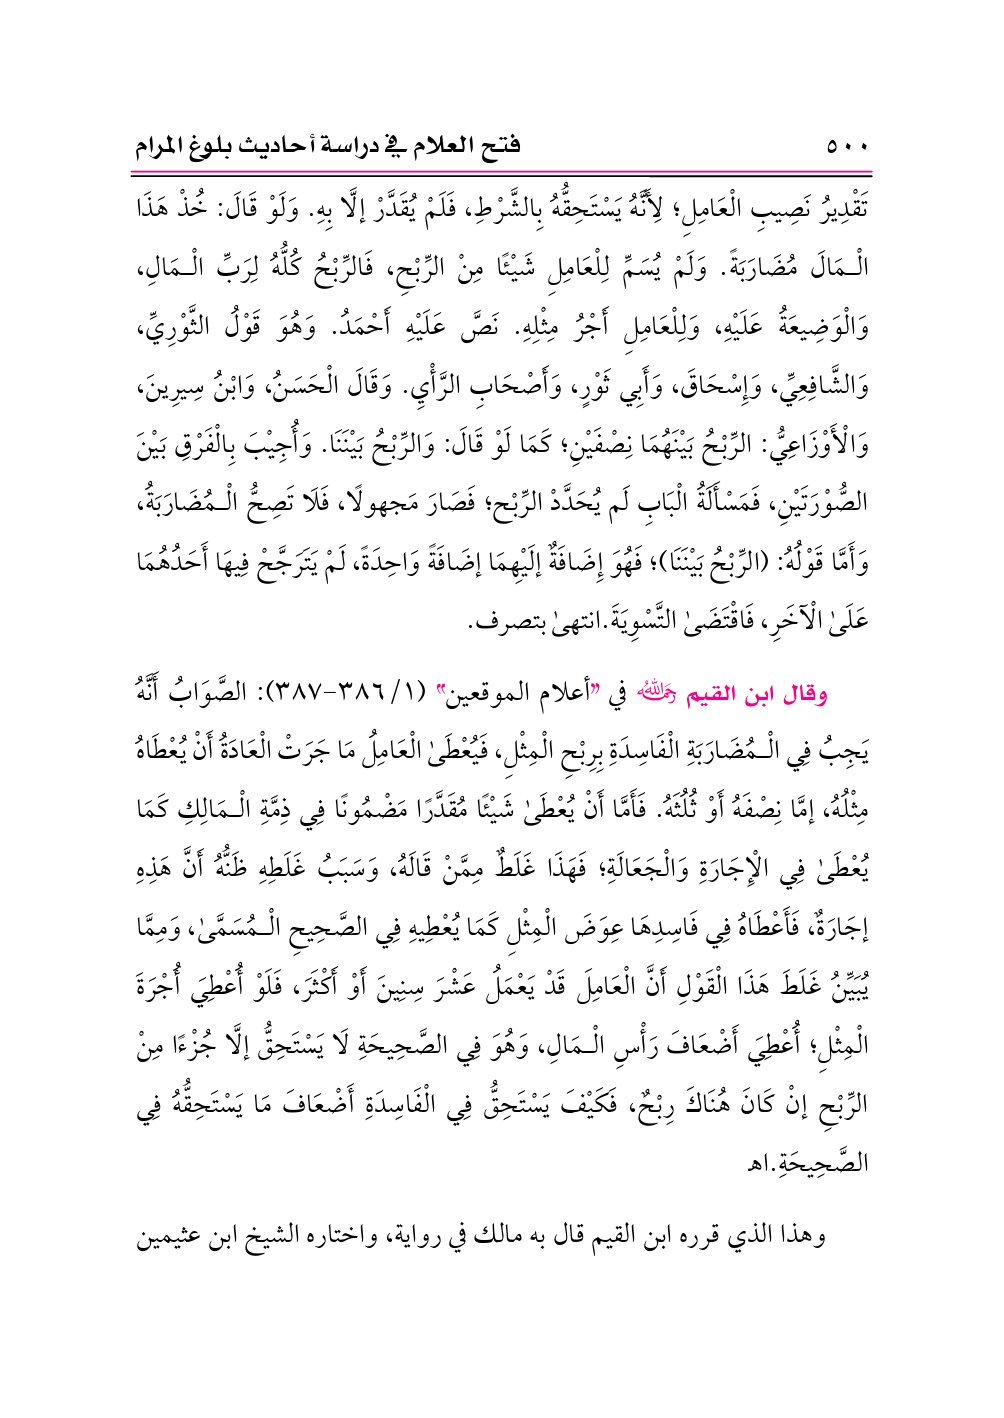 ٥٠٠ فتح العلام في دراسة أحاديث بلوغ المرام
تَقْدِيرُ نَصِيبِ الْعَامِلِ؛ لِأَنَّهُ يَسْتَحِقُّهُ بِالشَّرْطِ، فَلَمْ يُقَدَّرْ إلَّا بِهِ. وَلَوْ قَالَ: خُذْ هَذَا
الْـمَالَ مُضَارَبَةً. وَلَمْ يُسَمِّ لِلْعَامِلِ شَيْئًا مِنْ الرِّبْحِ، فَالرِّبْحُ كُلُّهُ لِرَبِّ الْـمَالِ،
وَالْوَضِيعَةُ عَلَيْهِ، وَلِلْعَامِلِ أَجْرُ مِثْلِهِ. نَصَّ عَلَيْهِ أَحْمَدُ. وَهُوَ قَوْلُ الثَّوْرِيِّ،
وَالشَّافِعِيِّ، وَإِسْحَاقَ، وَأَبِي ثَوْرٍ، وَأَصْحَابِ الرَّأْيِ. وَقَالَ الْحَسَنُ، وَابْنُ سِيرِينَ،
وَالْأَوْزَاعِيُّ: الرِّبْحُ بَيْنَهُمَا نِصْفَيْنِ؛ كَمَا لَوْ قَالَ: وَالرِّبْحُ بَيْنَنَا. وَأُجِيْبَ بِالْفَرْقِ بَيْنَ
الصُّوْرَتَيْنِ، فَمَسْأَلَةُ الْبَابِ لَم يُحَدَّدْ الرِّبْح؛ فَصَارَ مَجهولًا، فَلَا تَصِحُّ الْـمُضَارَبَةُ،
وَأَمَّا قَوْلُهُ: (الرِّبْحُ بَيْنَنَا)؛ فَهُوَ إِضَافَةٌ إلَيْهِمَا إضَافَةً وَاحِدَةً، لَمْ يَتَرَجَّحْ فِيهَا أَحَدُهُمَا
عَلَىٰ الْآخَرِ، فَاقْتَضَىٰ التَّسْوِيَةَ.انتهىٰ بتصرف.
وقال ابن القيم رحمه الله في "أعلام الموقعين" (١/ ٣٨٦-٣٨٧): الصَّوَابُ أَنَّهُ
يَجِبُ فِي الْـمُضَارَبَةِ الْفَاسِدَةِ بِرِبْحِ الْمِثْلِ، فَيُعْطَىٰ الْعَامِلُ مَا جَرَتْ الْعَادَةُ أَنْ يُعْطَاهُ
مِثْلُهُ، إمَّا نِصْفَهُ أَوْ ثُلُثَهُ. فَأَمَّا أَنْ يُعْطَىٰ شَيْئًا مُقَدَّرًا مَضْمُونًا فِي ذِمَّةِ الْـمَالِكِ كَمَا
يُعْطَىٰ فِي الْإِجَارَةِ وَالْجَعَالَةِ؛ فَهَذَا غَلَطٌ مِمَّنْ قَالَهُ، وَسَبَبُ غَلَطِهِ ظَنُّهُ أَنَّ هَذِهِ
إجَارَةٌ، فَأَعْطَاهُ فِي فَاسِدِهَا عِوَضَ الْمِثْلِ كَمَا يُعْطِيهِ فِي الصَّحِيحِ الْـمُسَمَّىٰ، وَمِمَّا
يُبَيِّنُ غَلَطَ هَذَا الْقَوْلِ أَنَّ الْعَامِلَ قَدْ يَعْمَلُ عَشْرَ سِنِينَ أَوْ أَكْثَرَ، فَلَوْ أُعْطِيَ أُجْرَةَ
الْمِثْلِ؛ أُعْطِيَ أَضْعَافَ رَأْسِ الْـمَالِ، وَهُوَ فِي الصَّحِيحَةِ لَا يَسْتَحِقُّ إلَّا جُزْءًا مِنْ
الرِّبْحِ إنْ كَانَ هُنَاكَ رِبْحٌ، فَكَيْفَ يَسْتَحِقُّ فِي الْفَاسِدَةِ أَضْعَافَ مَا يَسْتَحِقُّهُ فِي
الصَّحِيحَةِ.اهـ
وهذا الذي قرره ابن القيم قال به مالك في رواية، واختاره الشيخ ابن عثيمين